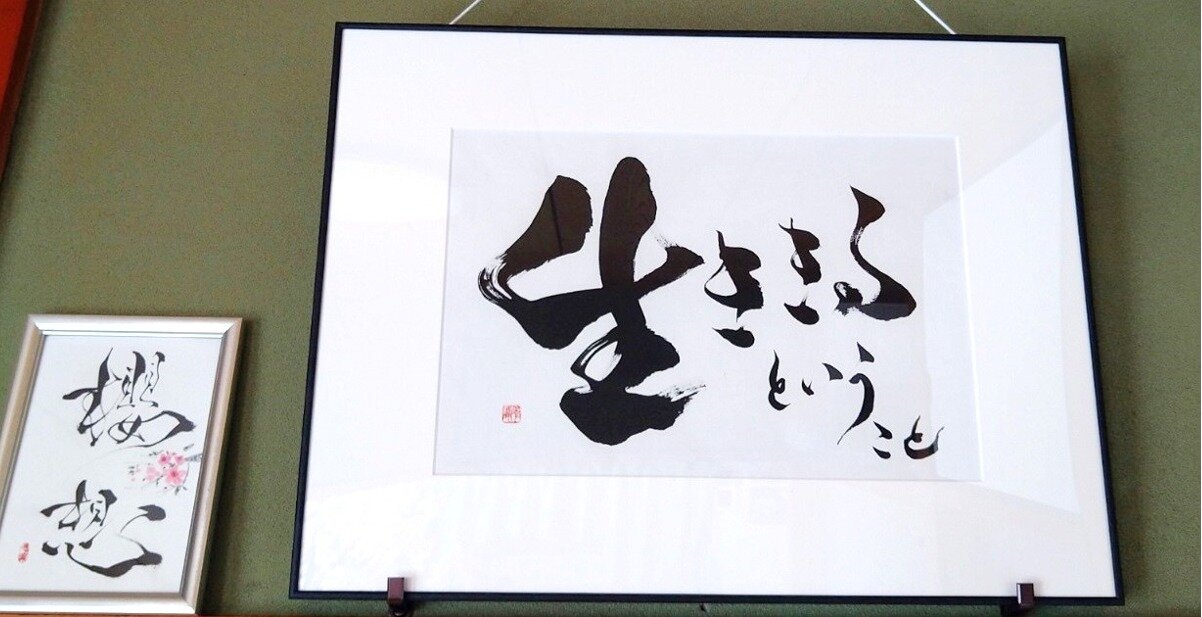 生ききる
ということ
櫻
想